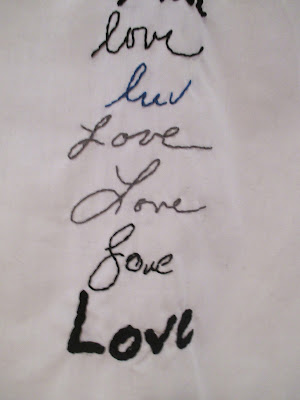 love
luv
Love
Love
Love
Love